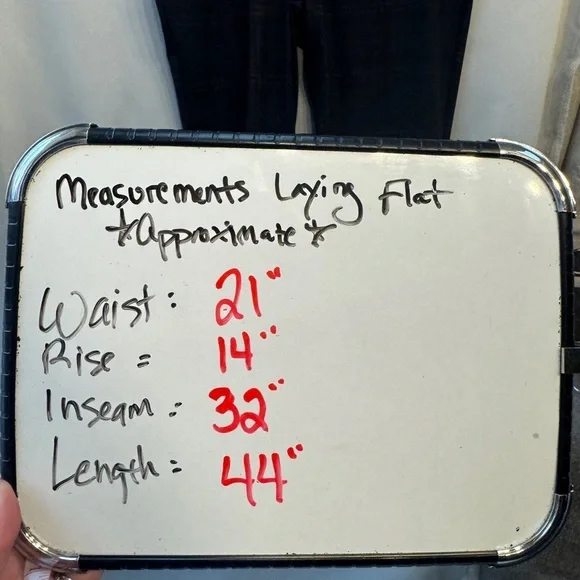 Measurements Laying Flat
*Approximate*
Waist: 21"
Rise = 14"
Inseam = 32"
Length = 44"